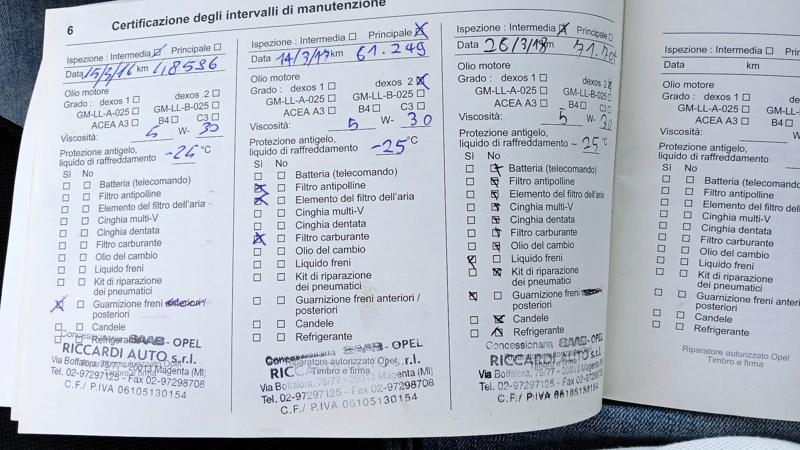 6 Certificazione degli intervalli di manutenzione
Ispezione : Intermedia ☒ Principale ☐
Data 15/3/16 km 48596
Olio motore
Grado : dexos 1 ☐ dexos 2 ☐
GM-LL-A-025 ☐ GM-LL-B-025 ☐
ACEA A3 ☐ B4 ☐ C3 ☐
Viscosità: 5 W- 30
Protezione antigelo,
liquido di raffreddamento -25 °C
Sì No
☐ ☐ Batteria (telecomando)
☐ ☐ Filtro antipolline
☐ ☐ Elemento del filtro dell'aria
☐ ☐ Cinghia multi-V
☐ ☐ Cinghia dentata
☐ ☐ Filtro carburante
☐ ☐ Olio del cambio
☐ ☐ Liquido freni
☐ ☐ Kit di riparazione
dei pneumatici
☒ ☐ Guarnizione freni
posteriori
☐ ☐ Candele
☐ ☐ Refrigerante
Concessionaria SAAB - OPEL
RICCARDI AUTO s.r.l.
Via Boffalora, 75/77 - 20013 Magenta (MI)
Timbro e firma
Tel. 02-97297125 - Fax 02-97298708
C.F./ P.IVA 06105130154
Ispezione : Intermedia ☐ Principale ☒
Data 14/3/17 km 61.249
Olio motore
Grado : dexos 1 ☐ dexos 2 ☒
GM-LL-A-025 ☐ GM-LL-B-025 ☐
ACEA A3 ☐ B4 ☐ C3 ☐
Viscosità: 5 W- 30
Protezione antigelo,
liquido di raffreddamento -25 °C
Sì No
☐ ☐ Batteria (telecomando)
☒ ☐ Filtro antipolline
☒ ☐ Elemento del filtro dell'aria
☐ ☐ Cinghia multi-V
☐ ☐ Cinghia dentata
☒ ☐ Filtro carburante
☐ ☐ Olio del cambio
☐ ☐ Liquido freni
☐ ☐ Kit di riparazione
dei pneumatici
☐ ☐ Guarnizione freni anteriori /
posteriori
☐ ☐ Candele
☐ ☐ Refrigerante
Concessionaria SAAB - OPEL
Riparatore autorizzato Opel
Timbro e firma
Via Boffalora, 75/77 - 20013 Magenta (MI)
Tel. 02-97297125 - Fax 02-97298708
C.F./ P.IVA 06105130154
Ispezione : Intermedia ☒ Principale ☐
Data 26/3/18 km
Olio motore
Grado : dexos 1 ☐ dexos 2 ☒
GM-LL-A-025 ☐ GM-LL-B-025 ☐
ACEA A3 ☐ B4 ☐ C3 ☐
Viscosità: 5 W- 30
Protezione antigelo,
liquido di raffreddamento - 25 °C
Sì No
☐ ☒ Batteria (telecomando)
☐ ☒ Filtro antipolline
☐ ☒ Elemento del filtro dell'aria
☐ ☒ Cinghia multi-V
☐ ☒ Cinghia dentata
☐ ☒ Filtro carburante
☐ ☒ Olio del cambio
☒ ☐ Liquido freni
☐ ☒ Kit di riparazione
dei pneumatici
☒ ☐ Guarnizione freni
posteriori
☐ ☒ Candele
☐ ☒ Refrigerante
Concessionaria SAAB - OPEL
RICCARDI AUTO s.r.l.
Via Boffalora, 75/77 - 20013 Magenta (MI)
Tel. 02-97297125 - Fax 02-97298708
C.F./ P.IVA 06105130154
Ispezione : Intermedia ☐
Data km
Olio motore
Grado : dexos 1 ☐
GM-LL-A-025 ☐ GM-LL-B
ACEA A3 ☐ B4 ☐
Viscosità:
Protezione antigelo,
liquido di raffreddamento
Sì No
☐ ☐ Batteria (telecomando)
☐ ☐ Filtro antipolline
☐ ☐ Elemento del filtro dell'a
☐ ☐ Cinghia multi-V
☐ ☐ Cinghia dentata
☐ ☐ Filtro carburante
☐ ☐ Olio del cambio
☐ ☐ Liquido freni
☐ ☐ Kit di riparazione
dei pneumatici
☐ ☐ Guarnizione freni anteriori
posteriori
☐ ☐ Candele
☐ ☐ Refrigerante
Riparatore autorizzato Opel
Timbro e firma